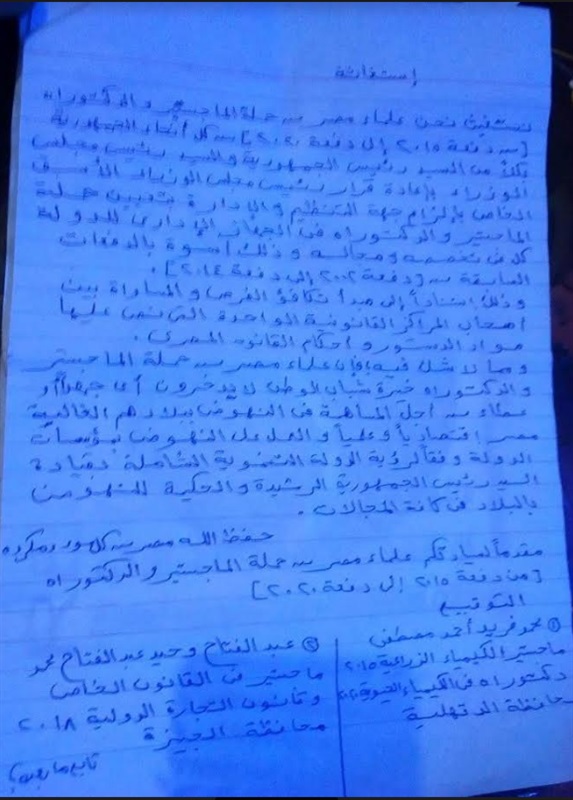 إستغاثة
نستغيث نحن علماء مصر من حملة الماجستير والدكتوراه
[من دفعة ٢٠١٥ إلى دفعة ٢٠٢٠] من كل أنحاء الجمهورية
بكلاً من السيد رئيس الجمهورية والسيد رئيس مجلس
الوزراء بإعادة قرار رئيس مجلس الوزراء الأسبق
الخاص بإلزام جهة التنظيم والإدارة بتعيين حملة
الماجستير والدكتوراه فى الجهاز الإدارى للدولة
كل فى تخصصه ومجاله وذلك أسوة بالدفعات
السابقة من [دفعة ٢٠٠٢ إلى دفعة ٢٠١٤].
وذلك إستناداً إلى مبدأ تكافؤ الفرص والمساواة بين
أصحاب المراكز القانونية الواحدة التى نص عليها
مواد الدستور وأحكام القانون المصرى.
ومما لا شك فيه فإن علماء مصر من حملة الماجستير
والدكتوراه خيرة شباب الوطن لا يدخرون أى جهداً أو
عطاء من أجل المساهمة فى النهوض ببلادهم الغالية
مصر إقتصادياً وعلمياً والعمل على النهوض بمؤسسات
الدولة وفقاً لرؤية الدولة التنموية الشاملة بقيادة
السيد رئيس الجمهورية الرشيدة والحكيمة للنهوض
بالبلاد فى كافة المجالات.
حفظ الله مصر من كل سوء ومكروه
مقدماً لسيادتكم علماء مصر من حملة الماجستير والدكتوراه
[من دفعة ٢٠١٥ إلى دفعة ٢٠٢٠]
التوقيع
١ محمد فريد أحمد مصطفى
ماجستير الكيمياء الزراعية ٢٠١٥
دكتوراه فى الكيمياء الحيوية
محافظة الدقهلية
٢ عبد الفتاح وحيد عبد الفتاح محمد
ماجستير فى القانون الخاص
وقانون التجارة الدولية ٢٠١٨
محافظة الجيزة
تابع ما بعده